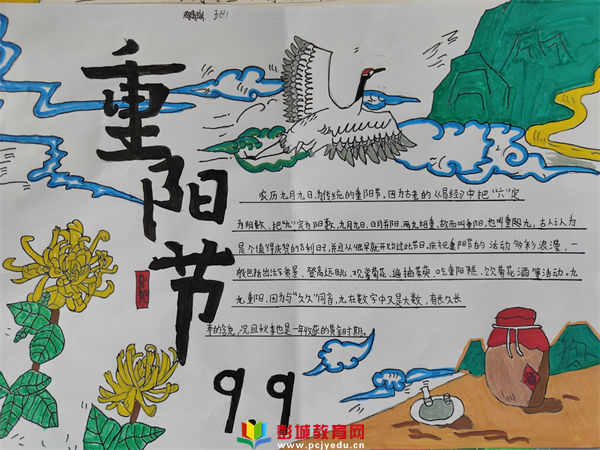 重阳节
农历九月九日,为传统的重阳节,因为古老的《易经》中把“六”定
为阴数,把“九”定为阳数,九月九日,日月并阳,两九相重,故而叫重阳,也叫重九,古人认为
是个值得庆贺的吉利日子,并且从很早就开始过此节日,庆祝重阳节的活动多彩浪漫,一
般包括出游赏景、登高远眺、观赏菊花、遍插茱萸、吃重阳糕、饮菊花酒等活动。九
九重阳,因为与“久久”同音,九在数字中又是大数,有长久长
寿的含意,况且秋季也是一年收获的黄金时期。
99
酒
彭城教育网
www.pcjyedu.cn